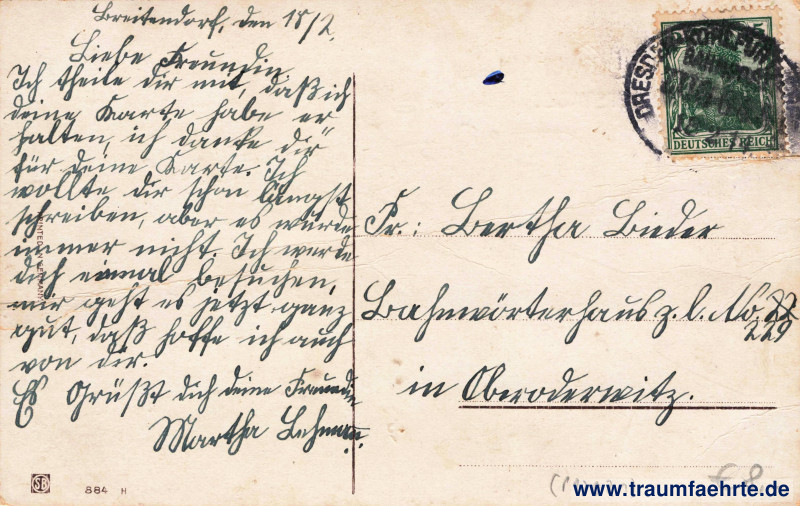 Breitendorf, den 18/2.
Liebe Freundin
Ich theile dir mit, daß ich
deine Karte habe er
halten, ich danke dir
für deine Karte. Ich
wollte dir schon längst
schreiben, aber es wurde
immer nicht. Ich werde
dich einmal besuchen,
mir geht es jetzt ganz
gut, daß hoffe ich auch
von dir.
Es Grüßt dich deine Freundin
Martha Lehmann.
Fr: Bertha Bieder
Bahnwörterhaus z. l. No.
229
in Oberoderwitz.
DEUTSCHES REICH
SB
884 H
www.traumfaehrte.de